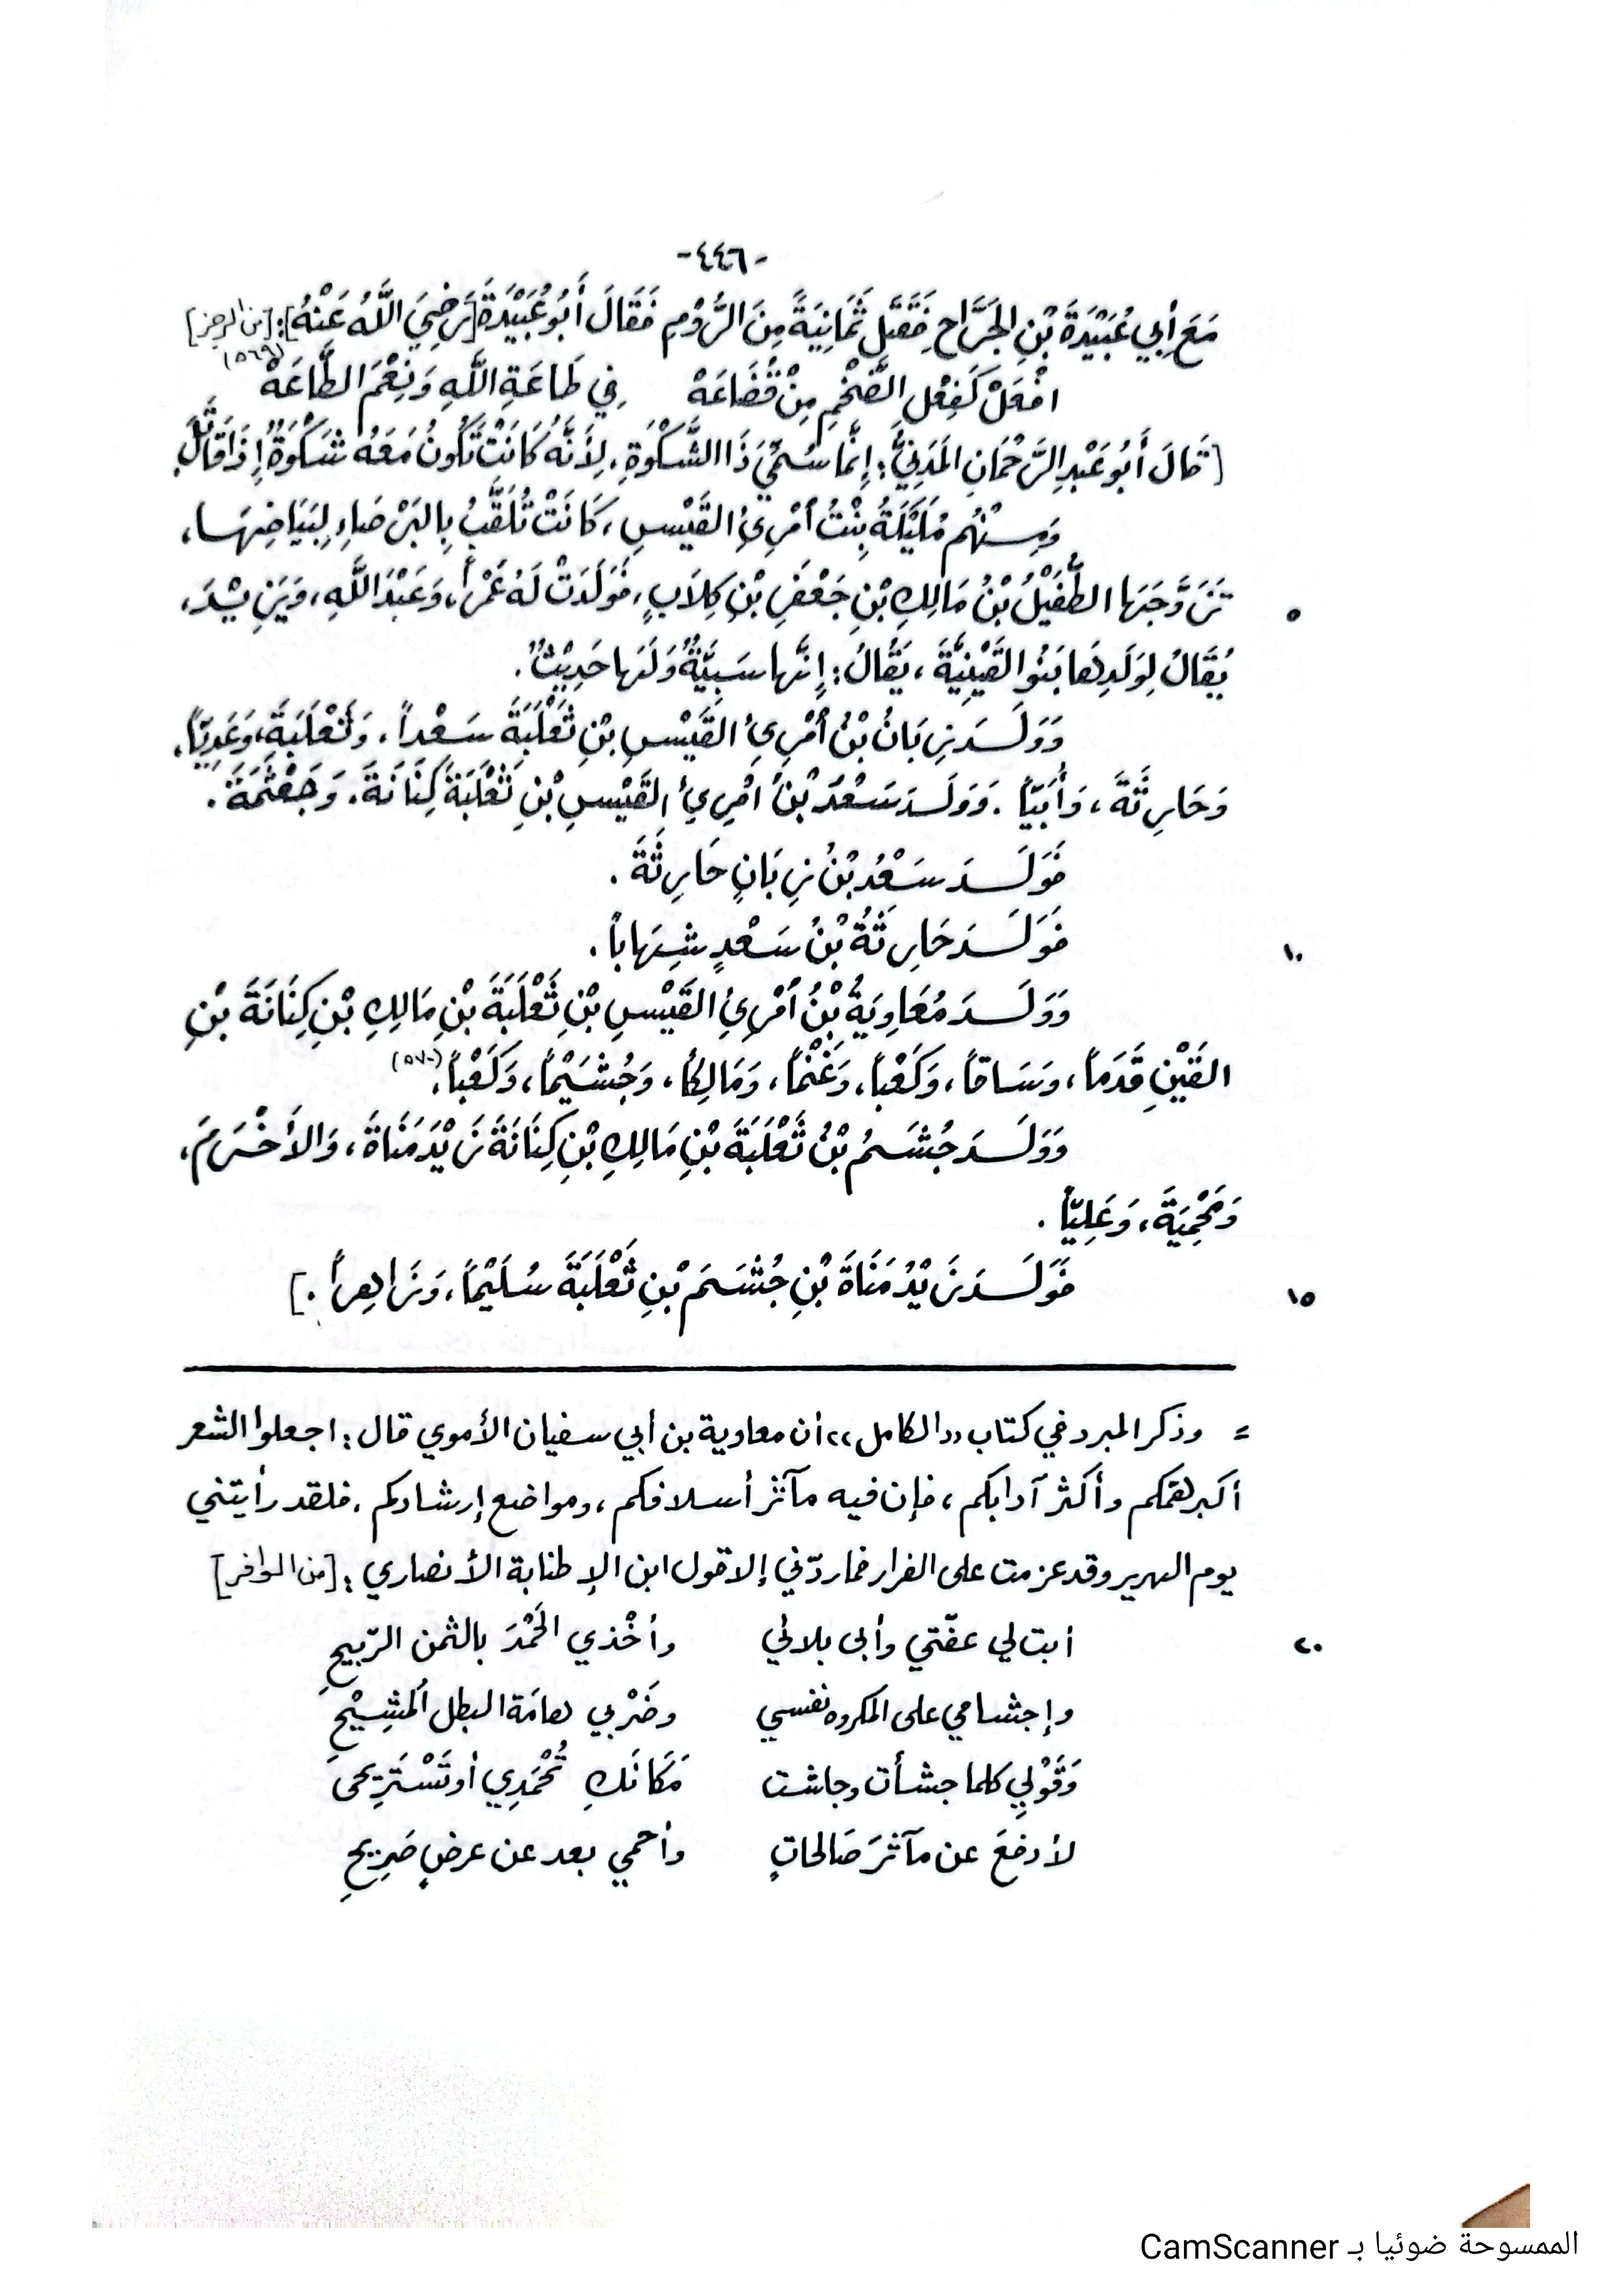 -٤٤٦-
مَعَ أَبِي عُبَيْدَةَ بْنِ الجَرَّاحِ فَقَتَلَ ثَمَانِيَةً مِنَ الرُّوْمِ فَقَالَ أَبُو عُبَيْدَةَ [رَضِيَ اللَّهُ عَنْهُ]: [من الرجز]
افْعَلْ كَفِعْلِ الضَّخْمِ مِنْ قُضَاعَهْ فِي طَاعَةِ اللَّهِ وَنِعْمَ الطَّاعَهْ (٥٦٩)
[قَالَ أَبُو عَبْدِ الرَّحْمَانِ المَدَنِيُّ: إِنَّمَا سُمِّيَ ذَا الشَّكْوَةِ، لِأَنَّهُ كَانَتْ تَكُونُ مَعَهُ شَكْوَةٌ إِذَا قَاتَلَ.
وَمِنْهُم مُلَيْكَةُ بِنْتُ امْرِئِ القَيْسِ، كَانَتْ تُلَقَّبُ بِالبَرْصَاءِ لِبَيَاضِهَا،
تَزَوَّجَهَا الطُّفَيْلُ بْنُ مَالِكِ بْنِ جَعْفَرِ بْنِ كِلَابٍ، فَوَلَدَتْ لَهُ عَمْراً، وَعَبْدَ اللَّهِ، وَيَزِيْدَ، ٥
يُقَالُ لِوَلَدِهَا بَنُو القَيْنِيَّةَ، يُقَالُ: إِنَّهَا سَبِيَّةٌ وَلَهَا حَدِيْثٌ.
وَوَلَدَ زِبَانُ بْنُ امْرِئِ القَيْسِ بْنِ ثَعْلَبَةَ سَعْداً، وَثَعْلَبَةَ، وَعَدِيّاً،
وَحَارِثَةَ، وَأُبَيّاً. وَوَلَدَ سَعْدُ بْنُ امْرِئِ القَيْسِ بْنِ ثَعْلَبَةَ كِنَانَةَ. وَجَعْثَمَةَ.
فَوَلَدَ سَعْدُ بْنُ زِبَانٍ حَارِثَةَ.
فَوَلَدَ حَارِثَةُ بْنُ سَعْدٍ شِهَاباً. ١٠
وَوَلَدَ مُعَاوِيَةُ بْنُ امْرِئِ القَيْسِ بْنِ ثَعْلَبَةَ بْنِ مَالِكِ بْنِ كِنَانَةَ بْنِ
القَيْنِ قَدَماً، وَسَاقاً، وَكَعْباً، وَغَنْماً، وَمَالِكاً، وَجُشَيْماً، وَكَعْباً، (٥٧٠)
وَوَلَدَ جُشَمُ بْنُ ثَعْلَبَةَ بْنِ مَالِكِ بْنِ كِنَانَةَ زَيْدَ مَنَاةَ، وَالأَخْرَمَ،
وَمَحْمِيَةَ، وَعَلِيّاً.
فَوَلَدَ زَيْدُ مَنَاةَ بْنِ جُشَمَ بْنِ ثَعْلَبَةَ سُلَيْماً، وَزَاهِراً.] ١٥
= وذكر المبرد في كتاب ((الكامل)) أن معاوية بن أبي سفيان الأموي قال: اجعلوا الشعر
أكبر همّكم وأكثر آدابكم، فإن فيه مآثر أسلافكم، ومواضع إرشادكم، فلقد رأيتني
يوم الهرير وقد عزمت على الفرار فما ردّني إلا قول ابن الإطنابة الأنصاري: [من الوافر]
أبت لي عفّتي وأبى بلائي وأخْذي الحَمْدَ بالثمن الرّبيحِ ٢٠
وإجشامي على المكروه نفسي وضَرْبي هامَة البطل المُشِيْحِ
وَقَوْلِي كلما جشأت وجاشت مَكَانَكِ تُحْمَدِي أو تَسْتَرِيحى
لأدفعَ عن مآثرَ صَالحاتٍ وأحمي بعد عن عرضٍ صَرِيحِ
الممسوحة ضوئيا بـ CamScanner